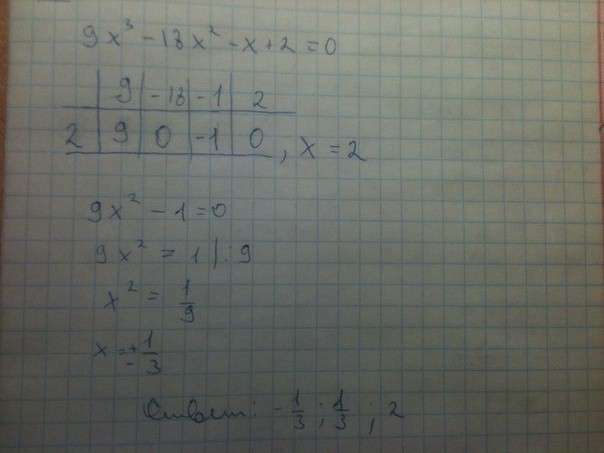 9x³ - 18x² - x + 2 = 0
9 | -18 | -1 | 2
2 | 9 | 0 | -1 | 0 , x = 2
9x² - 1 = 0
9x² = 1 | : 9
x² = 1/9
x = ± 1/3
Ответ: - 1/3 ; 1/3 ; 2